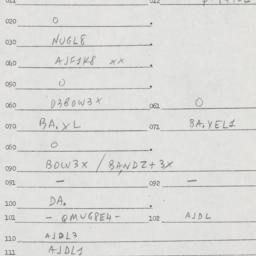 020 O
030 NUGL8
040 AJF1K8 xx
050 O
060 D3BOW3X 061 O
070 BA.YL 071 BA.YEL1
080 O
090 BOW3X / BANDZ+3X
091 — 092 —
100 DA.
101 - QMUGPE4 - 102 AJDL
110 AJDL3
111 AJDL1